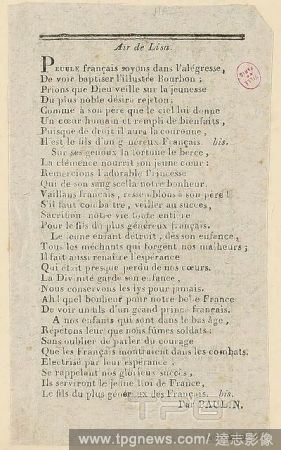 Air de Lisa.
PEUPLE français soyons dans l'alégresse,
De voir baptiser l'illustre Bourbon ;
Prions que Dieu veille sur la jeunesse
Du plus noble désiré rejeton ;
Comme à son père que le ciel lui donne
Un cœur humain et rempli de bienfaits,
Puisque de droit il aura la couronne,
Il est le fils d'un généreux Français. bis.
Sur ses genoux la fortune le berce,
La clémence nourrit son jeune cœur :
Remercions l'adorable Princesse
Qui de son sang scella notre bonheur.
Vaillans français, ressemblons à son père !
S'il faut combattre, veiller au succès,
Sacrifions notre vie toute entière
Pour le fils du plus généreux français.
Le jeune enfant détruit, dès son enfance,
Tous les méchants qui forgent nos malheurs ;
Il fait aussi renaître l'espérance
Qui était presque perdu de nos cœurs.
La Divinité garde son enfance,
Nous conservons les lys pour jamais.
Ah ! quel bonheur pour notre belle France
De voir un fils d'un grand prince français.
A nos enfans qui sont dans le bas âge,
Répétons leur que nous fûmes soldats ;
Sans oublier de parler du courage
Que les Français montraient dans les combats.
Electrisé par leur espérance,
Se rappelant nos glorieux succès,
Ils serviront le jeune Roi de France,
Le fils du plus généreux des Français. bis.
Par PAULIN.
www.tpgnews.com/ 達志影像